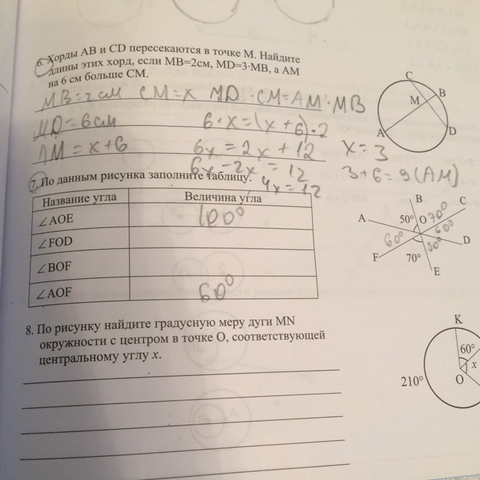 6. Хорды AB и CD пересекаются в точке M. Найдите
длины этих хорд, если MB=2см, MD=3·MB, а AM
на 6 см больше CM.
MB=2см CM=x MD·CM=AM·MB
MD=6см 6·x=(x+6)·2
AM=x+6 6x=2x+12 x=3
6x-2x=12 3+6=9(AM)
4x=12
C
B
M
A
D
7. По данным рисунка заполните таблицу.
Название угла Величина угла
∠AOE 100°
∠FOD
∠BOF
∠AOF 60°
B
C
A 50° O 70°
60° 60° D
F 50°
70°
E
8. По рисунку найдите градусную меру дуги MN
окружности с центром в точке O, соответствующей
центральному углу x.
K
60°
x
210° O